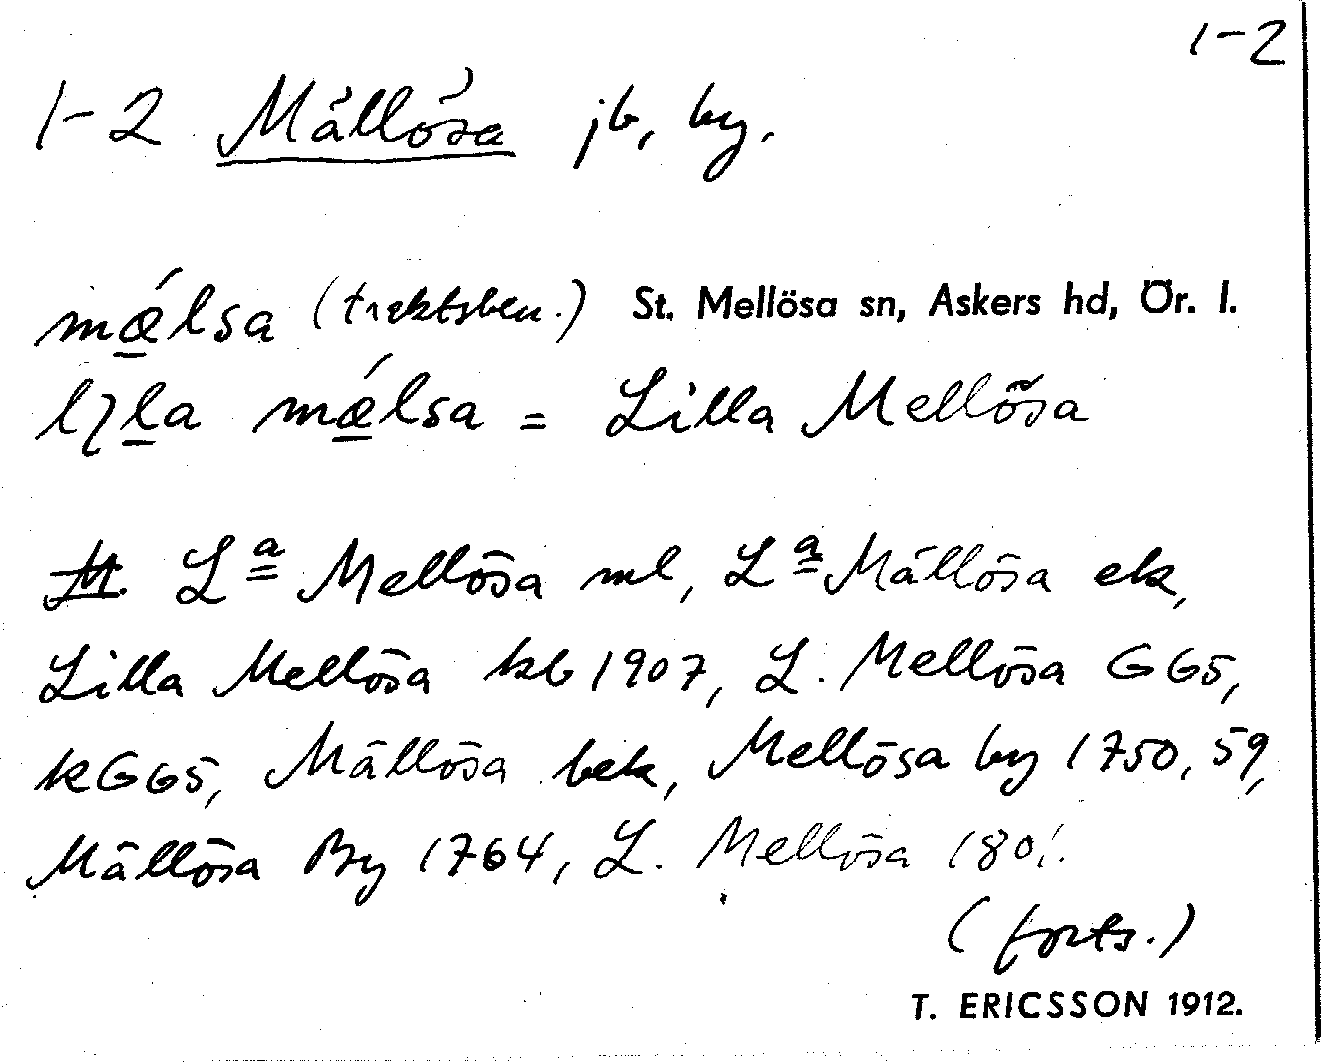 1-2
1-2 Mällösa jb, by.
mǽlsa (traktsben.) St. Mellösa sn, Askers hd, Ör. l.
lɿla mǽlsa = Lilla Mellösa
M. Lª Mellösa ml, Lª Mällösa ek,
Lilla Mellösa kb 1907, L. Mellösa GG5,
kGG5, Mällösa bek, Mellösa by 1750, 59,
Mällösa By 1764, L. Mellösa 1801.
(forts.)
T. ERICSSON 1912.